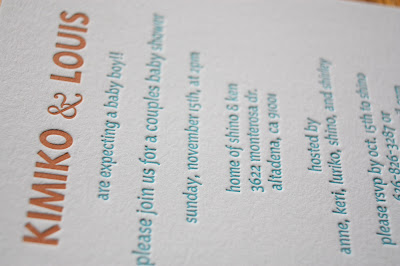 KIMIKO & LOUIS
are expecting a baby boy!!
please join us for a couples baby shower
sunday, november 15th, at 2pm
home of shino & ken
3622 monterosa dr.
altadena, ca 91001
hosted by
anne, keri, luriko, shino, and shirley
please rsvp by oct. 15th to shino
626-826-3287 or